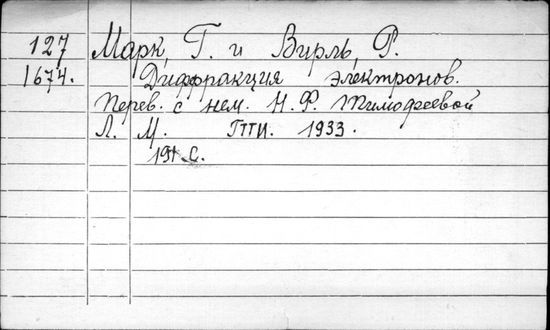 127 Марк Г. и Вирль, Р.
1674. Диффракция электронов.
Перев. с нем. Н. Ф. Тимофеевой
Л. М. ГТТИ. 1933.
191 с.